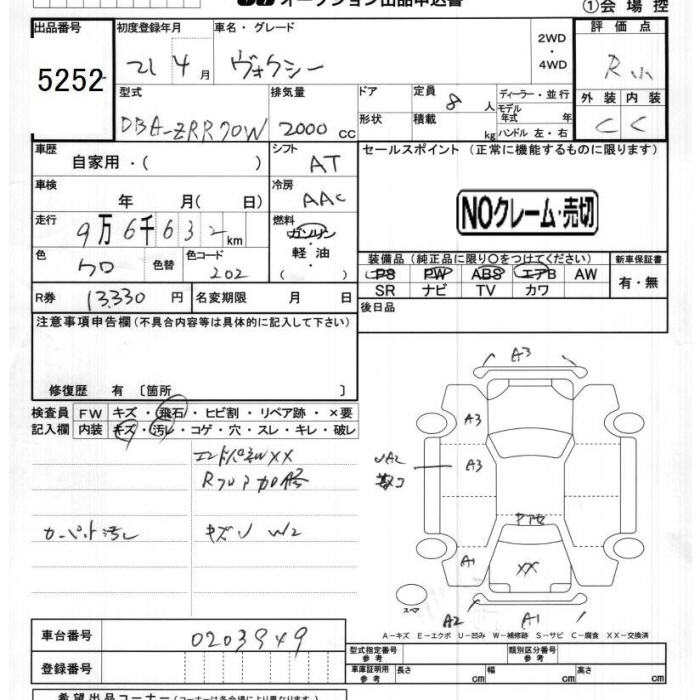 オークション出品申込書
①会場控
出品番号 初度登録年月 車名・グレード 2WD・4WD 評価点
5252 21 4月 ヴォクシー R
型式 排気量 ドア 定員 8人 ディーラー・並行 外装 内装
DBA-ZRR70W 2000cc 形状 積載 kg モデル年式 年 ハンドル 左・右 C C
車歴 シフト セールスポイント (正常に機能するものに限ります)
自家用・( ) AT
車検 冷房
年 月( 日) AAC NOクレーム・売切
走行 燃料
9万6千632km ガソリン・軽油・( )
色 クロ 色替 色コード 202
装備品(純正品に限り〇をつけてください) 新車保証書
PS PW ABS エアB AW 有・無
SR ナビ TV カワ
R券 13,330円 名変期限 月 日 後日品
注意事項申告欄(不具合内容等は具体的に記入して下さい)
修復歴 有 〔箇所 〕
検査員 FW キズ・飛石・ヒビ割・リペア跡・×要
記入欄 内装 キズ・汚レ・コゲ・穴・スレ・キレ・破レ
エンドパネXX
Rフロア加修
カーペット汚レ
キズ W2
A3
A3
A3
A1
XX
A2 A1
スペア
A-キズ E-エクボ U-凹み W-補修跡 S-サビ C-腐食 XX-交換済
車台番号 0203949
型式指定番号 参考 類別区分番号 参考
登録番号 車庫証明用 参考 長さ cm 幅 cm 高さ cm
希望出品コーナー(コーナーは各会場により異なります)